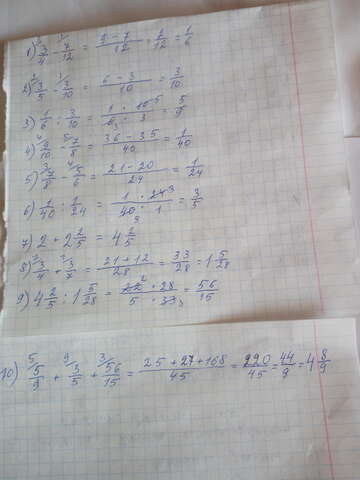 1) 3/4 - 7/12 = 9-7/12 = 2/12 = 1/6
2) 3/5 - 3/10 = 6-3/10 = 3/10
3) 1/6 : 3/10 = 1·10 5/6 3·3 = 5/9
4) 9/10 - 7/8 = 36-35/40 = 1/40
5) 7/8 - 5/6 = 21-20/24 = 1/24
6) 1/40 : 1/24 = 1·24 3/40 5·1 = 3/5
7) 2 + 2 2/5 = 4 2/5
8) 3/4 + 3/7 = 21+12/28 = 33/28 = 1 5/28
9) 4 2/5 : 1 5/28 = 22 2·28/5·33 3 = 56/15
10) 5/9 + 3/5 + 56/15 = 25+27+168/45 = 220/45 = 44/9 = 4 8/9